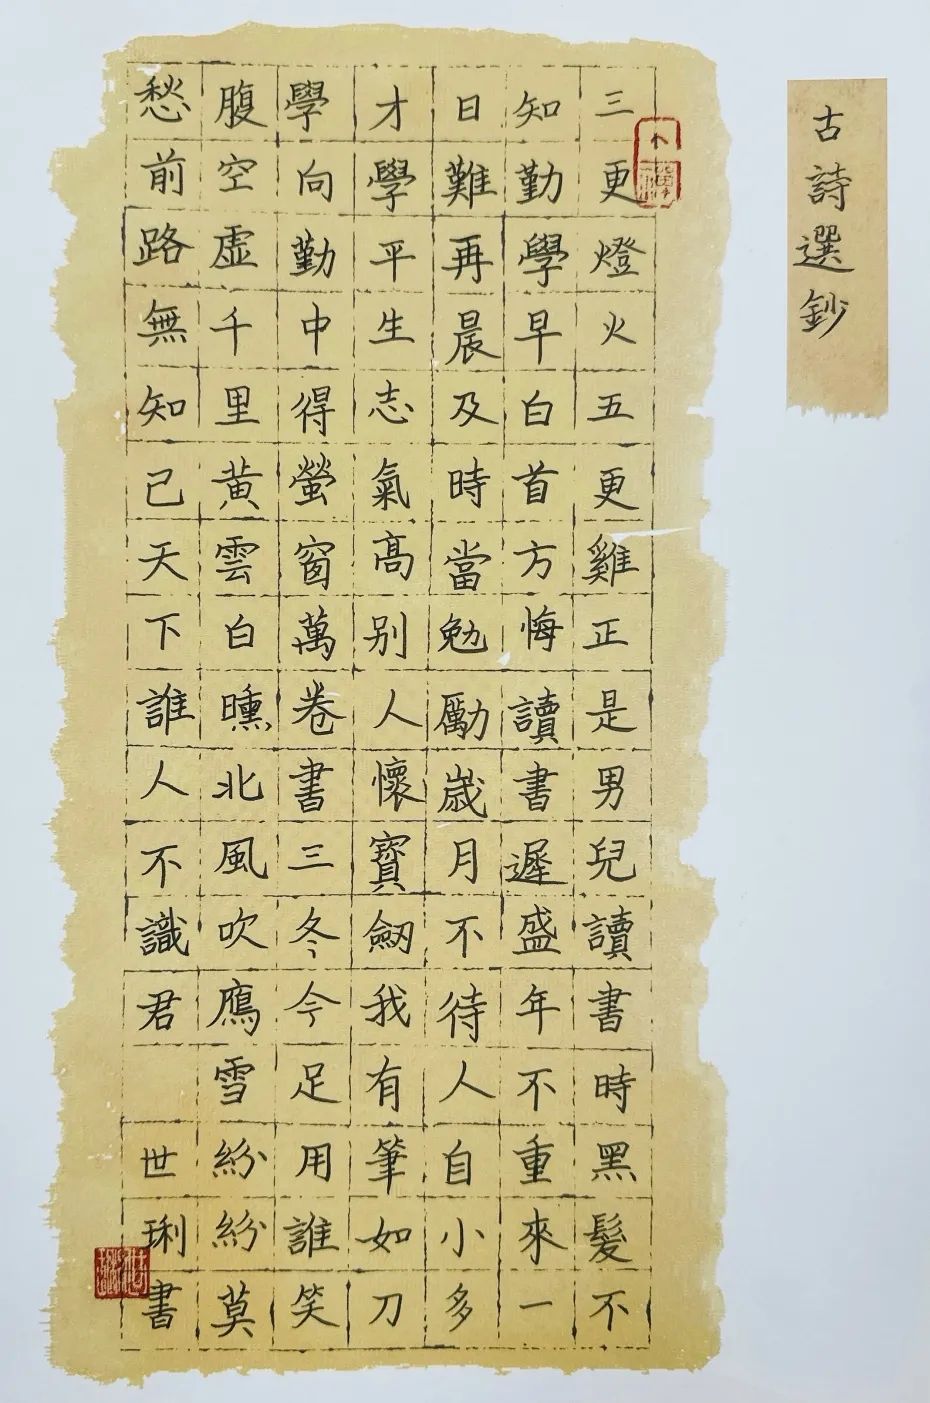 古詩選鈔
三更燈火五更雞正是男兒讀書時黑髮不
知勤學早白首方悔讀書遲盛年不重來一
日難再晨及時當勉勵歳月不待人自小多
才學平生志氣高别人懷寶劒我有筆如刀
學向勤中得螢窗萬卷書三冬今足用誰笑
腹空虛千里黄雲白曛北風吹鴈雪紛紛莫
愁前路無知己天下誰人不識君
世琍書